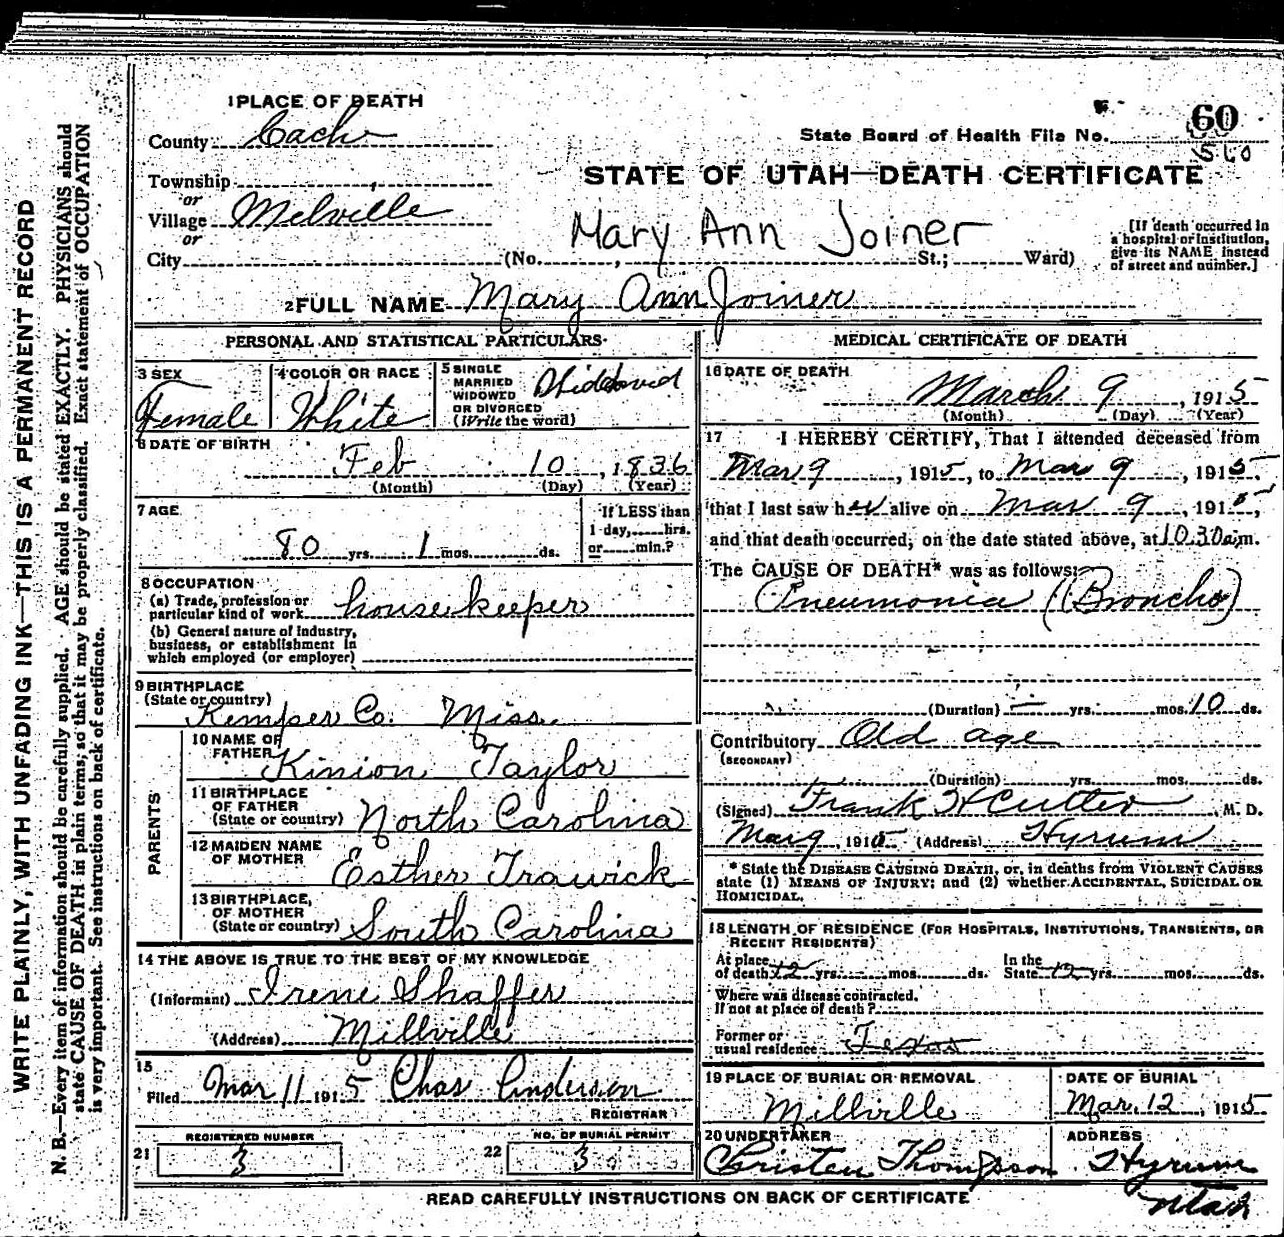 WRITE PLAINLY, WITH UNFADING INK—THIS IS A PERMANENT RECORD
N. B.—Every item of information should be carefully supplied. AGE should be stated EXACTLY. PHYSICIANS should
state CAUSE OF DEATH in plain terms, so that it may be properly classified. Exact statement of OCCUPATION
is very important. See instructions on back of certificate.
1 PLACE OF DEATH
County Cache
Township
or
Village Melville
or
City (No. , St.; Ward)
State Board of Health File No. 60
560
STATE OF UTAH—DEATH CERTIFICATE
Mary Ann Joiner
[If death occurred in
a hospital or institution,
give its NAME instead
of street and number.]
2 FULL NAME Mary Ann Joiner
PERSONAL AND STATISTICAL PARTICULARS
3 SEX
Female
4 COLOR OR RACE
White
5 SINGLE
MARRIED
WIDOWED
OR DIVORCED
(Write the word)
Widowed
6 DATE OF BIRTH
Feb 10, 1836
(Month) (Day) (Year)
7 AGE
80 yrs. 1 mos. ds.
If LESS than
1 day, hrs.
or min.?
8 OCCUPATION
(a) Trade, profession or
particular kind of work housekeeper
(b) General nature of industry,
business, or establishment in
which employed (or employer)
9 BIRTHPLACE
(State or country)
Kemper Co. Miss.
PARENTS
10 NAME OF
FATHER Kinion Taylor
11 BIRTHPLACE
OF FATHER
(State or country) North Carolina
12 MAIDEN NAME
OF MOTHER Esther Trawick
13 BIRTHPLACE,
OF MOTHER
(State or country) South Carolina
14 THE ABOVE IS TRUE TO THE BEST OF MY KNOWLEDGE
(Informant) Irene Shaffer
(Address) Millville
15
Filed Mar 11 1915 Chas Anderson
REGISTRAR
21 REGISTERED NUMBER
3
22 NO. OF BURIAL PERMIT
3
MEDICAL CERTIFICATE OF DEATH
16 DATE OF DEATH
March 9, 1915
(Month) (Day) (Year)
17 I HEREBY CERTIFY, That I attended deceased from
Mar 9, 1915, to Mar 9, 1915
that I last saw her alive on Mar 9, 1915,
and that death occurred, on the date stated above, at 10.30 a.m.
The CAUSE OF DEATH* was as follows:
Pneumonia (Broncho)
(Duration) — yrs. mos. 10 ds.
Contributory Old age
(SECONDARY)
(Duration) yrs. mos. ds.
(Signed) Frank H Cutter, M. D.
Mar 9, 1915 (Address) Hyrum
* State the DISEASE CAUSING DEATH, or, in deaths from VIOLENT CAUSES
state (1) MEANS OF INJURY; and (2) whether ACCIDENTAL, SUICIDAL OR
HOMICIDAL.
18 LENGTH OF RESIDENCE (FOR HOSPITALS, INSTITUTIONS, TRANSIENTS, OR
RECENT RESIDENTS)
At place
of death 12 yrs. mos. ds.
In the
State 12 yrs. mos. ds.
Where was disease contracted,
If not at place of death?
Former or
usual residence Texas
19 PLACE OF BURIAL OR REMOVAL
Millville
DATE OF BURIAL
Mar. 12, 1915
20 UNDERTAKER
Christen Thompson
ADDRESS
Hyrum
Utah
READ CAREFULLY INSTRUCTIONS ON BACK OF CERTIFICATE